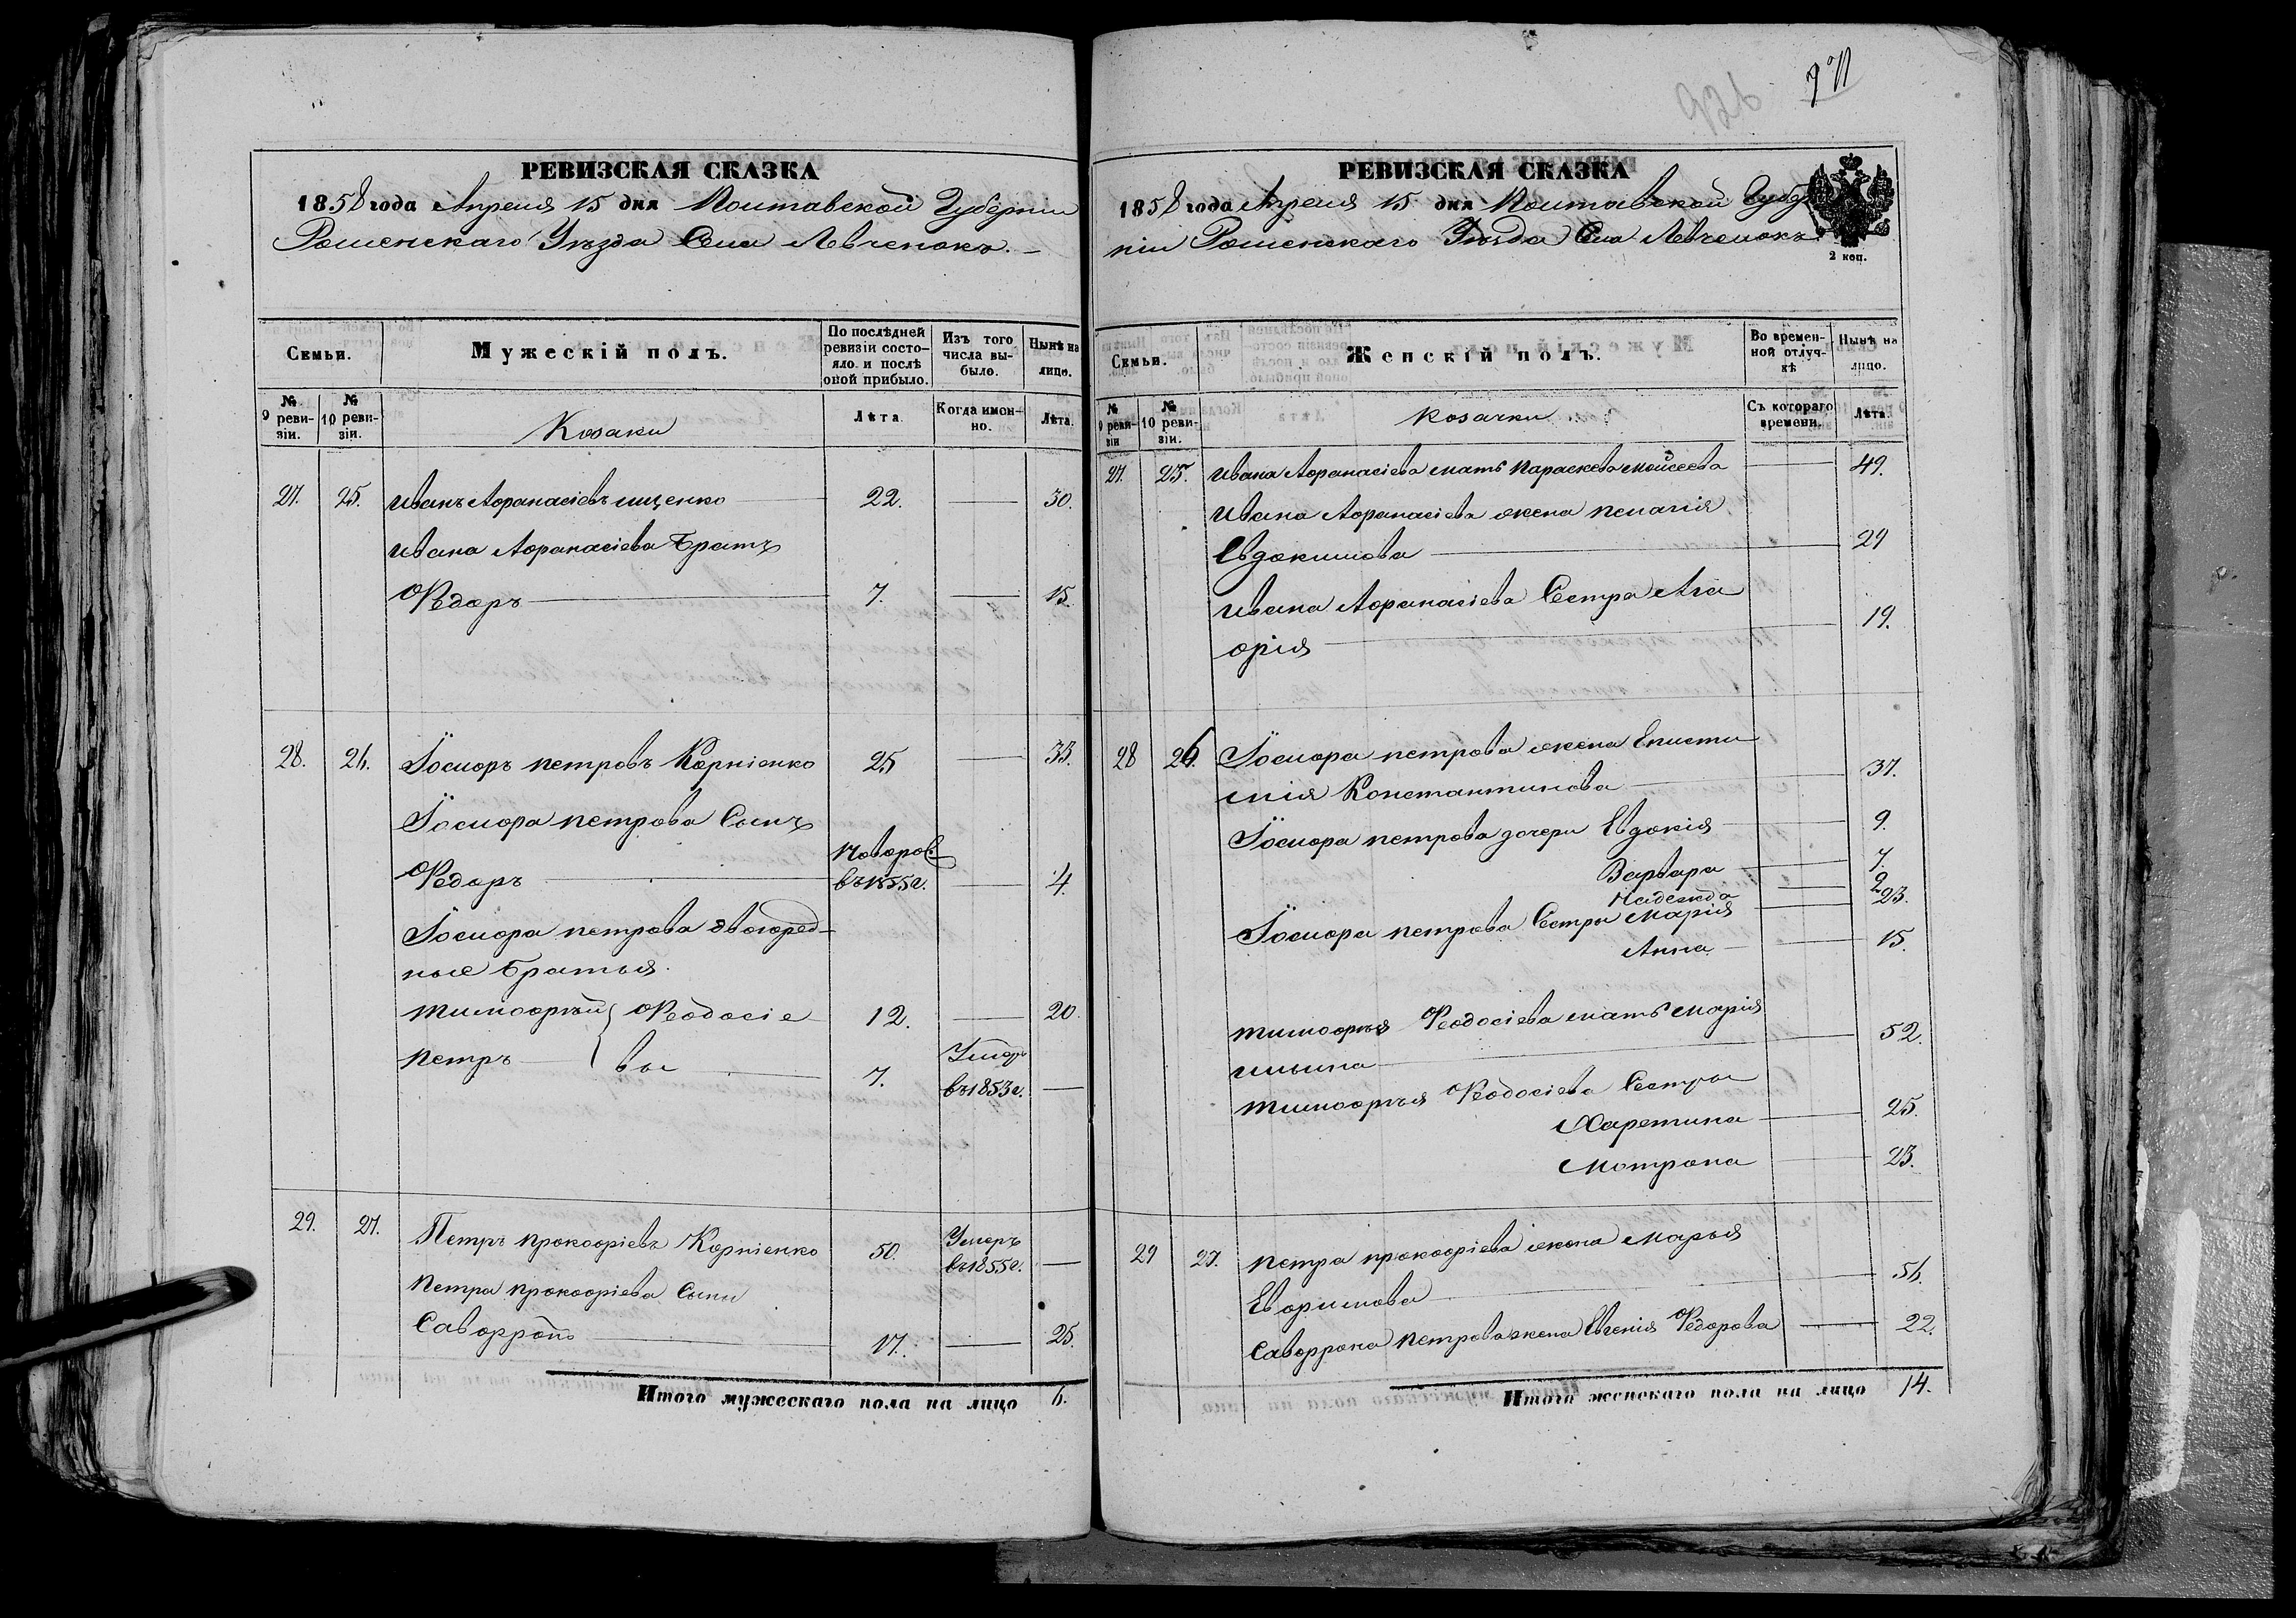 926
РЕВИЗСКАЯ СКАЗКА
1858 года Апреля 15 дня Полтавской Губернии
Роменскаго Уѣзда Села Левченокъ.
Семьи.
Мужескій полъ.
По послѣдней ревизіи состояло и послѣ оной прибыло.
Изъ того числа выбыло.
Нынѣ на лицо.
№ 9 ревизіи.
№ 10 ревизіи.
Козаки
Лѣта
Когда имонно.
Лѣта.
27. 25. Иванъ Афанасіевъ Ищенко 22. 30.
Ивана Афанасіева Братъ
Ѳедоръ 7. 15.
28. 26. Іосифъ Петровъ Корніенко 25 33.
Іосифа Петрова Сынъ
Новорож.
Ѳедоръ въ 1855 г. 4.
Іосифа Петрова двоюрод-
ные Братья
Тимофѣй } Ѳеодосіе 12. 20.
Петръ } вы 7. Умеръ
въ 1853 г.
29. 27. Петръ Прокофіевъ Корніенко 50. Умеръ
въ 1855 г.
Петра Прокофіева Сынъ
Савфронъ 17. 25.
Итого мужескаго пола на лицо 6.
РЕВИЗСКАЯ СКАЗКА
1858 года Апреля 15 дня Полтавской Губер
ніи Роменскаго Уѣзда Села Левченокъ
2 коп.
Семьи.
Женскій полъ.
Во временной отлучкѣ
Нынѣ на лицо.
№ 9 ревизіи
№ 10 ревизіи.
Козачки
Съ котораго времени.
Лѣта.
27. 25. Ивана Афанасіева мать Параскева Моисеева 49.
Ивана Афанасіева жена Пелагія
Евдокимова 29
Ивана Афанасіева Сестра Ага
фія 19.
28 26. Іосифа Петрова жена Еписти
мія Константинова 37.
Іосифа Петрова дочери Евдокія 9.
Варвара 7.
Надежда 2
Іосифа Петрова Сестры Марія 23.
Анна 15.
Тимофѣя Ѳеодосіева мать Марія
Ильина 52.
Тимофѣя Ѳеодосіева Сестры
Харетина 25.
Мотрона 23.
29 27. Петра Прокофіева жена Марья
Евфимова 56.
Савфрона Петрова жена Евгенія Ѳедорова 22.
Итого женскаго пола на лицо 14.